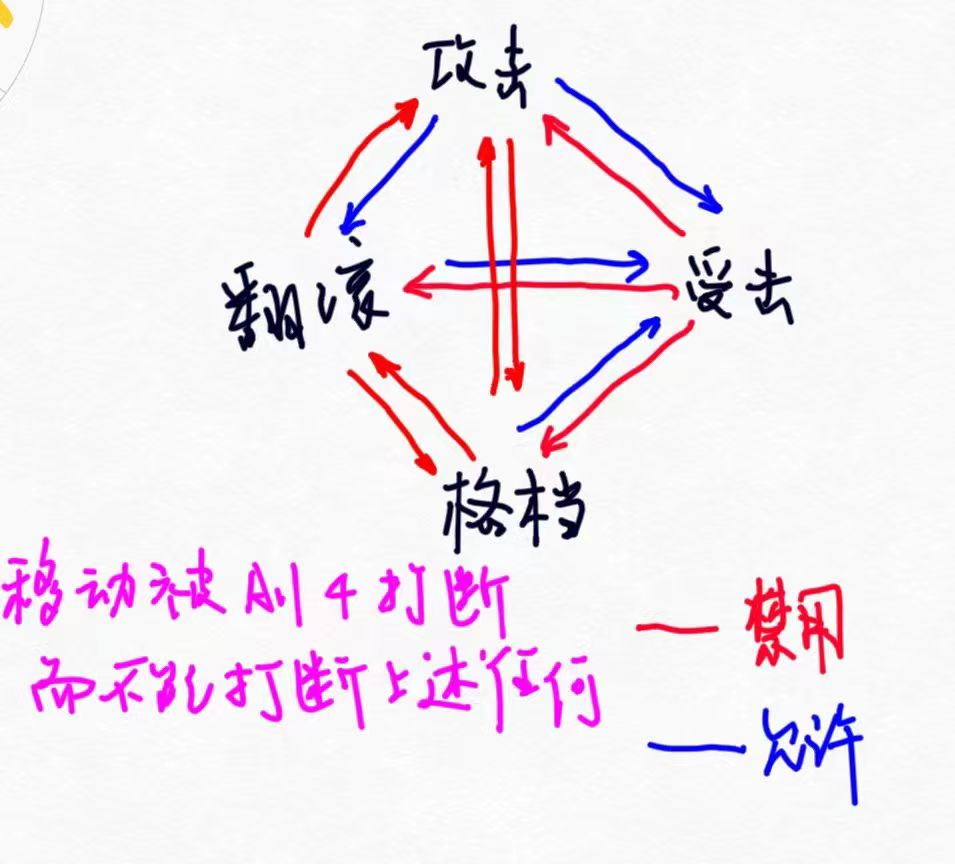 攻击
翻滚
受击
格档
移动被 All 4 打断
而不能打断上述任何
禁用
允许